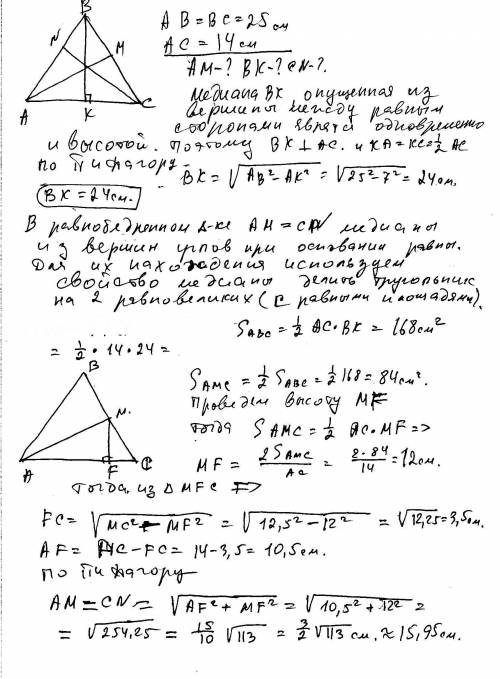 B
N
M
A
K
C
AB = BC = 25 см
AC = 14 см
AM-? BK-? CN-?.
Медиана BK опущенная из
вершины между равным
сторонами явятся одновременно
и высотой. Поэтому BK ⊥ AC. и KA = KC = 1/2 AC
по Пифагору
BK = √AB² - AK² = √25² - 7² = 24 см.
BK = 24 см.
В равнобедренном Δ-ке AM = CN медианы
из вершин углов при основании равны.
Для их нахождения используем
свойство медианы делить треугольник
на 2 равновеликих (с равными площадями).
S ABC = 1/2 AC · BK = 168 см²
= 1/2 · 14 · 24 =
B
M.
A
F
C
S AMC = 1/2 S ABC = 1/2 168 = 84 см².
Проведем высоту MF
тогда S AMC = 1/2 AC · MF =>
MF = 2 S AMC / AC = 2 · 84 / 14 = 12 см.
тогда из Δ MFC =>
FC = √MC² - MF² = √12,5² - 12² = √12,25 = 3,5 см.
AF = AC - FC = 14 - 3,5 = 10,5 см.
по Пифагору
AM = CN = √AF² + MF² = √10,5² + 12² =
= √254,25 = 15/10 √113 = 3/2 √113 см. ≈ 15,95 см.